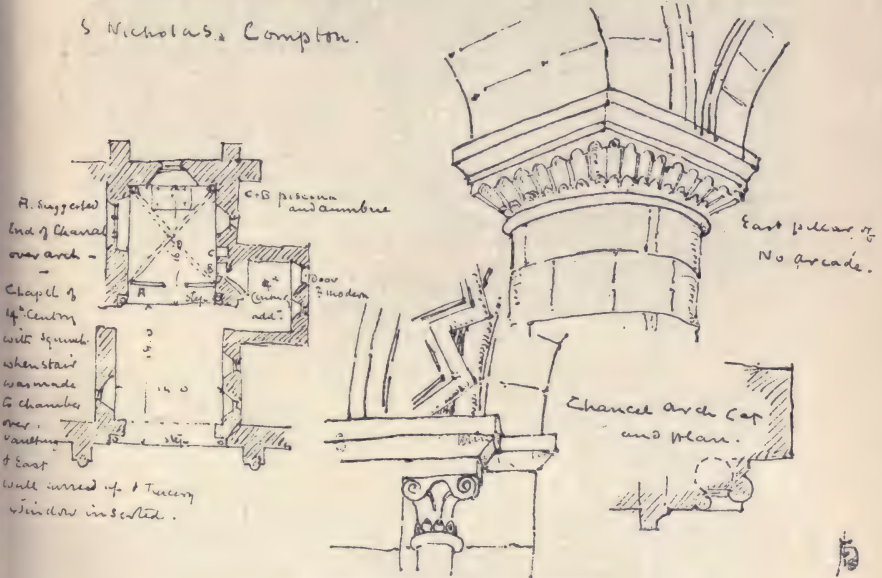 S Nicholas. Compton.
A. Suggested
End of Chancel
over arch -
Chapel of
14th Century
with Squint
when stair
was made
to Chamber
over.
Vaulting
of East
Wall
window inserted.
C & B piscina
and aumbrie
C
B
A
Step
4th
Century
add.
Door
modern
14.0
Step
East pillar of
No arcade.
Chancel arch Cap
and plan.